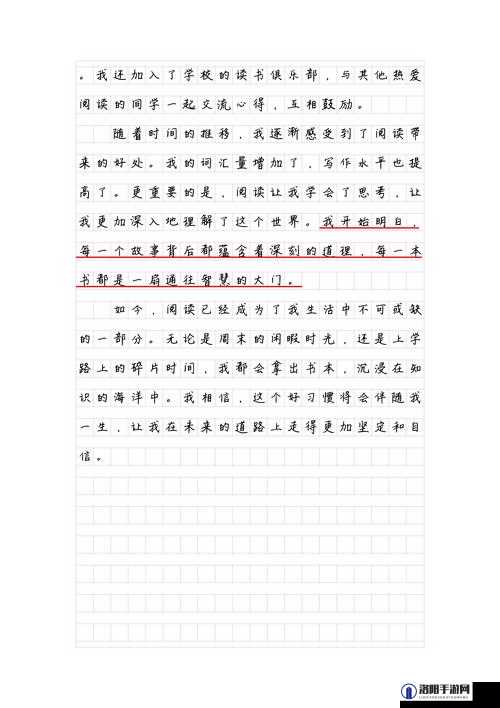 。我还加入了学校的读书俱乐部，与其他热爱
阅读的同学一起交流心得，互相鼓励。
随着时间的推移，我逐渐感受到了阅读带
来的好处。我的词汇量增加了，写作水平也提
高了。更重要的是，阅读让我学会了思考，让
我更加深入地理解了这个世界。我开始明白，
每一个故事背后都蕴含着深刻的道理，每一本
书都是一扇通往智慧的大门。
如今，阅读已经成为了我生活中不可或缺
的一部分。无论是周末的闲暇时光，还是上学
路上的碎片时间，我都会拿出书本，沉浸在知
识的海洋中。我相信，这个好习惯将会伴随我
一生，让我在未来的道路上走得更加坚定和自
信。
洛阳手游网